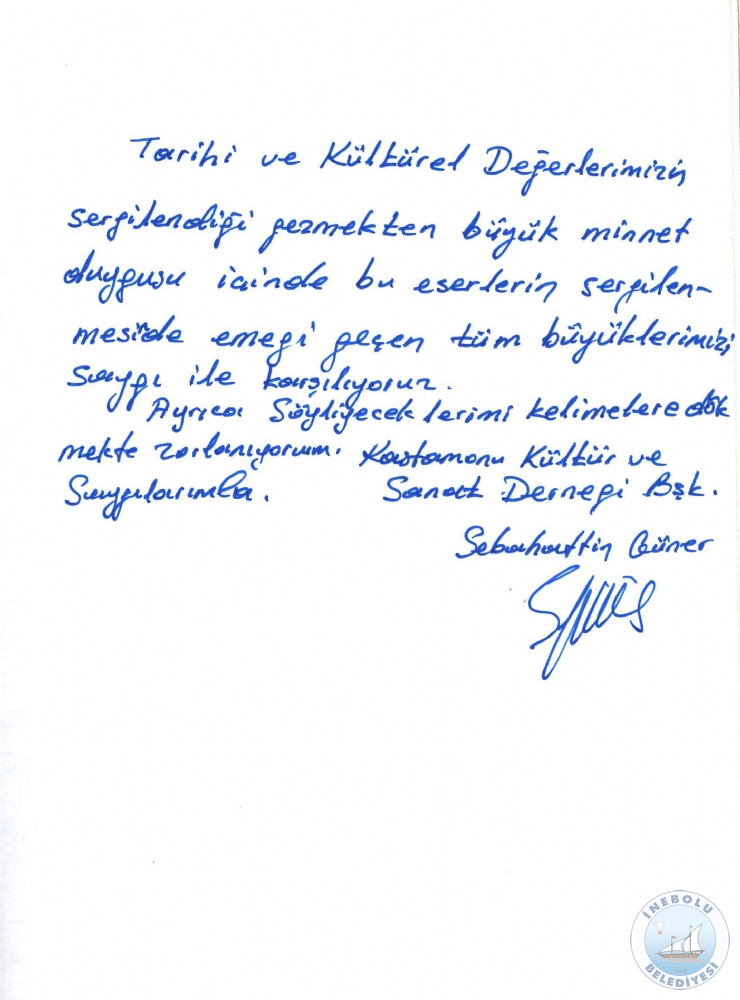 Tarihi ve Kültürel Değerlerimizin
sergilendiği gezmekten büyük minnet
duygusu icinde bu eserlerin sergilen-
mesinde emegi geçen tüm büyüklerimizi
saygı ile karşılıyoruz.
Ayrıca Söyliyeceklerimi kelimelere dök
mekte zorlanıyorum. Kastamonu Kültür ve
Saygılarımla. Sanat Dernegi Bşk.
Sebahattin Güner
İNEBOLU
BELEDİYESİ